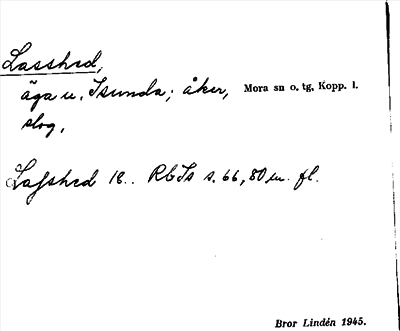 Lasshed,
äga u. Isunda; åker, Mora sn o. tg, Kopp. l.
slog.
Lasshed 18.. RbIs s. 66, 80 m. fl.
Bror Lindén 1945.